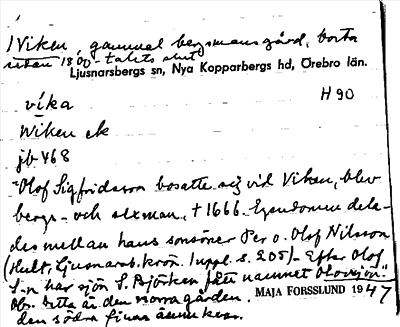 1 Viken, gammal bergsmansgård, borta
sedan 1800-talets slut
Ljusnarsbergs sn, Nya Kopparbergs hd, Örebro län.
vika H 90
Wiken ek
jb 468
"Olof Sigfridsson bosatte sig vid Viken, blev
bergs- och sexman, † 1666. Egendomen dela-
des mellan hans sonsöner Per o. Olof Nilsson
(Hult, Ljusnarsb. krön. Suppl. s. 205). Efter Olof
S-n har sjön S. Björken fått namnet Olovsjön."
Obs. Detta är den norra gården.
den södra finns ännu kvar.
MAJA FORSSLUND 1947